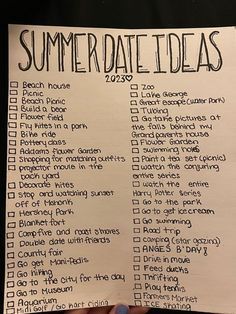 SUMMER DATE IDEAS
2023♡
Beach house
Picnic
Beach Picnic
Build a bear
Flower field
Fly kites in a park
Bike ride
Pottery class
Addams flower Garden
Shopping for matching outfits
projector movie in the
park yard
Decorate kites
stop and watching sunset
off of Mahonin
Hershey Park
Blanket fort
Campfire and roast s'mores
Double date with friends
County fair
Go get Mani-Pedis
Go hiking
Go to the City for the day
Go to Museum
Aquarium
Mini Golf / Go kart riding
Zoo
Lake George
Great escape (water park)
Tubing
Go take pictures at
the falls behind my
Grandparents house
Flower Garden
swimming hole
Paint a tea set (picnic)
watch the conjuring
entire series
Watch the entire
Harry Potter series
Go to the park
Go to get ice cream
Go swimming
Road trip
camping (star gazing)
ANGES B'DAY!
Drive in movie
Feed ducks
Thrifting
Play tennis
Farmers Market
ICE SKATING